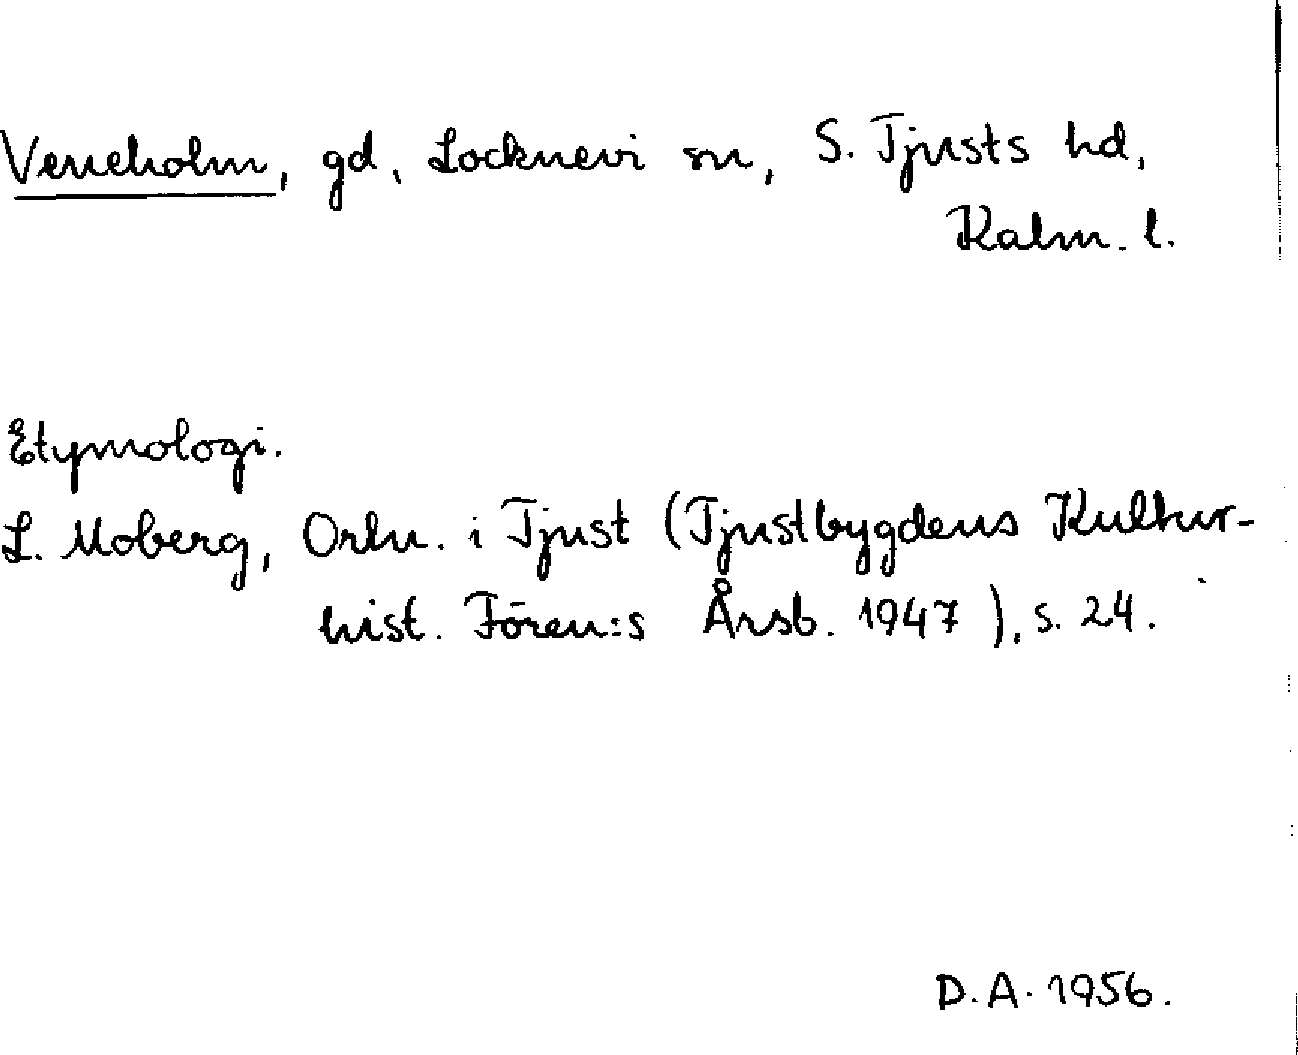 Veneholm, gd, Locknevi sn, S. Tjusts hd,
Kalm. l.
Etymologi.
L. Moberg, Ortn. i Tjust (Tjustbygdens Kultur-
hist. Fören:s Årsb. 1947), s. 24.
D.A. 1956.